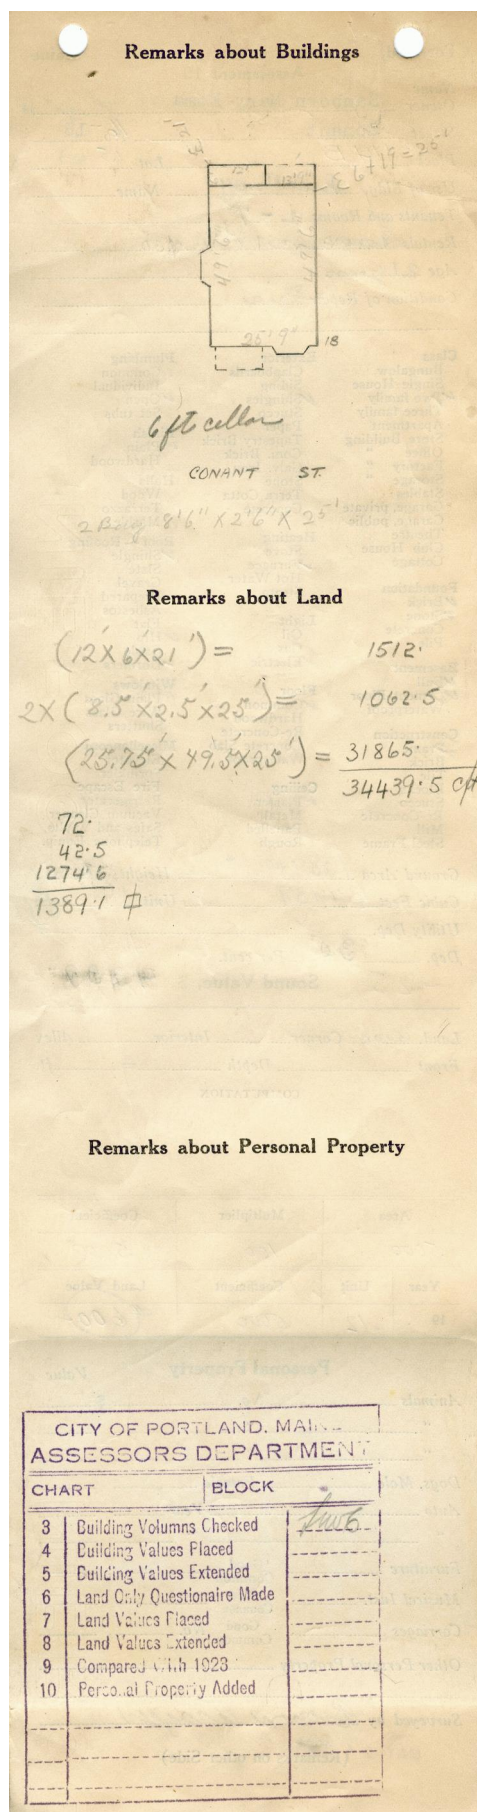 Remarks about Buildings
6+19=25'
12'
13'9"
49'6"
49'6"
25'9"
18
6 ft cellar
CONANT ST.
2 Bay 8'6" X 2'6" X 25'
Remarks about Land
(12'X6'X21') = 1512.
2X (8.5'X2.5'X25') = 1062.5
(25.75'X 49.5'X25') = 31865.
34439.5 cft
72.
42.5
1274.6
1389.1
Remarks about Personal Property
CITY OF PORTLAND, MAINE
ASSESSORS DEPARTMENT
CHART BLOCK
3 Building Volumns Checked
4 Building Values Placed
5 Building Values Extended
6 Land Only Questionaire Made
7 Land Values Placed
8 Land Values Extended
9 Compared With 1923
10 Personal Property Added